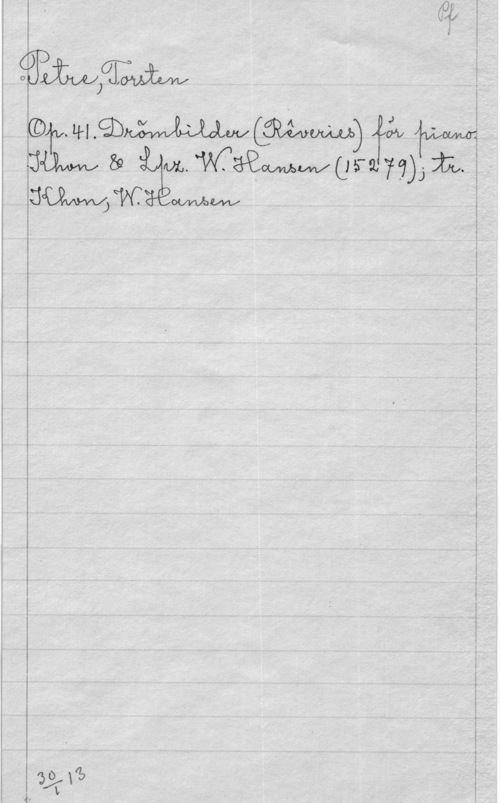 Pf
Petre, Torsten
Op. 41. Drömbilder (Rêveries) för piano.
Khvn & Lpz. W. Hansen (15279); tr.
Khvn, W. Hansen
30/1 13